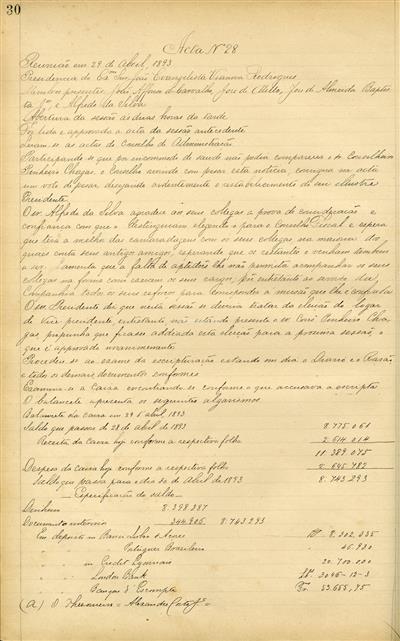 30
Acta Nº 28
Reunião em 29 de Abril, 1893
Presidencia do Exmo Snr. João Evangelista Vianna Rodrigues
Membros presentes João Affonso de Carvalho, José de Mello, José de Almeida Baptis
ta Jor. e Alfredo da Silva
Abertura da sessão ás duas horas da tarde
Foi lida e approvada a acta da sessão antecedente
Leram-se as actas do Conselho de Administração
Participando-se que por incommodo de saude não podia comparecer o sr Conselheiro
Pinheiro Chagas, o Conselho ouvindo com pesar esta noticia, consigna na acta
um voto de pesar desejando ardentemente o restabelecimento do seu illustre
Presidente
O snr. Alfredo da Silva agradece aos seus collegas a prova de consideração e
confiança com que o distinguiram elegendo-o para o Conselho Fiscal e espera
que terá a melhor das camaradagens com os seus collegas na maioria dos
quaes conta seus antigos amigos, esperando que os restantes o venham tambem
a ser. Lamenta que a falta de aptidões lhe não permitta acompanhar os seus
collegas na forma como exercem os seus cargos, porá entretanto ao serviço da
Companhia todos os seus esforços para corresponder á missão que lhe é confiada
O snr. Presidente diz que n'esta sessão se deveria tratar da eleição do logar
de Vice presidente, entretanto não estando presente o sr. Consº Pinheiro Cha
gas propunha que ficasse addiada esta eleição para a proxima sessão, o
que é approvado unanimemente.
Procedeu-se ao exame da escripturação estando em dia o Diario e o Razão
e todos os demais documentos conformes
Examinou-se a Caixa encontrando-se conforme o que accusava a escripta
O balancete apresenta os seguintes algarismos
Balancete da caixa em 29 d'abril 1893
Saldo que passou de 28 de abril de 1893 8.775.061
Receita da Caixa hoje conforme a respectiva folha 2.614.014
11.389.075
Despesa da Caixa hoje conforme a respectiva folha 2.645.782
Saldo que passa para o dia 30 de Abril de 1893 8.743.293
Especificação do saldo
Dinheiro 8.398.387
Documentos interinos 344.906 8.743.293
Em deposito no Banco Lisboa & Açores Rs. 8.302.035
" " Portuguez Brasileiro " 46.930
" no Credit Lyonnais " 20.700.000
" London Bank
" Banque d'Escompte Fr. 53.655,95
(a) O Thesoureiro =